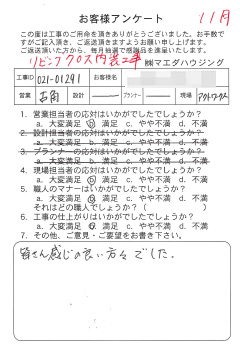 お客様アンケート
11月
この度は工事のご用命を頂きありがとうございました。お手数で
すがご記入頂き、ご返送頂きますようお願い申し上げます。
ご返送頂いた方から、毎月抽選で感謝品を進呈いたします。
リビングクロス内装工事 ㈱マエダハウジング
工事ID 021-01291 お客様名
営業 古角 設計 プランナー 現場 アクトワークス
1. 営業担当者の応対はいかがでしたでしょうか?
a. 大変満足 b. 満足 c. やや不満 d. 不満
2. 設計担当者の応対はいかがでしたでしょうか?
a. 大変満足 b. 満足 c. やや不満 d. 不満
3. プランナーの応対はいかがでしたでしょうか?
a. 大変満足 b. 満足 c. やや不満 d. 不満
4. 現場担当者の応対はいかがでしたでしょうか?
a. 大変満足 b. 満足 c. やや不満 d. 不満
5. 職人のマナーはいかがでしたでしょうか?
a. 大変満足 b. 満足 c. やや不満 d. 不満
それはどの職人でしょうか?( )
6. 工事の仕上がりはいかがでしたでしょうか?
a. 大変満足 b. 満足 c. やや不満 d. 不満
7. その他、ご意見・ご要望をお書き下さい。
皆さん感じの良い方々でした。